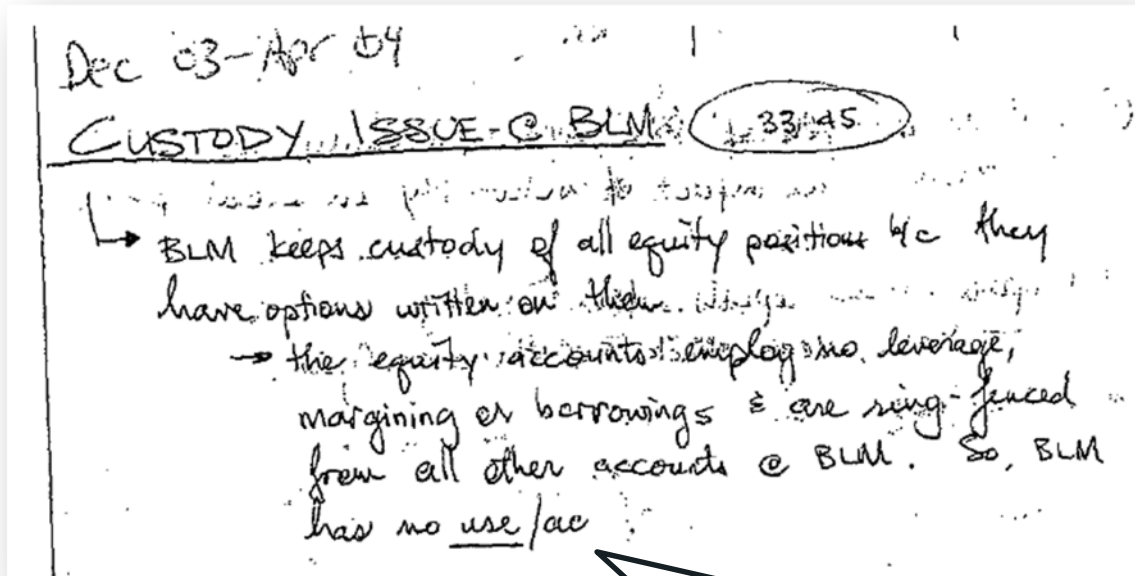 Dec 03-Apr 04
CUSTODY ISSUE-@ BLM 33:45
BLM keeps custody of all equity positions b/c they
have options written on them.
→ the equity accounts employ no leverage,
margining or borrowings & are ring-fenced
from all other accounts @ BLM. So, BLM
has no use/ac